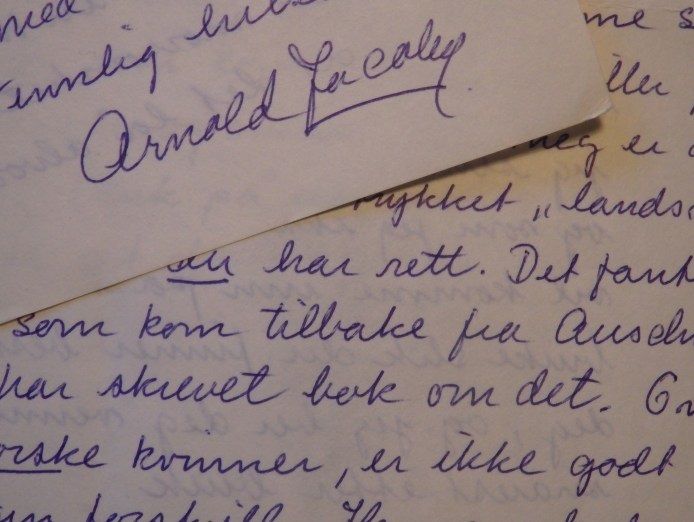 med
Vennlig hilsen
Arnold Jacoby
me s
iller
meg er
rykket „lands
du har rett. Det fant
som kom tilbake fra Ausch
har skrevet bok om det. Gr
orske kvinner, er ikke godt